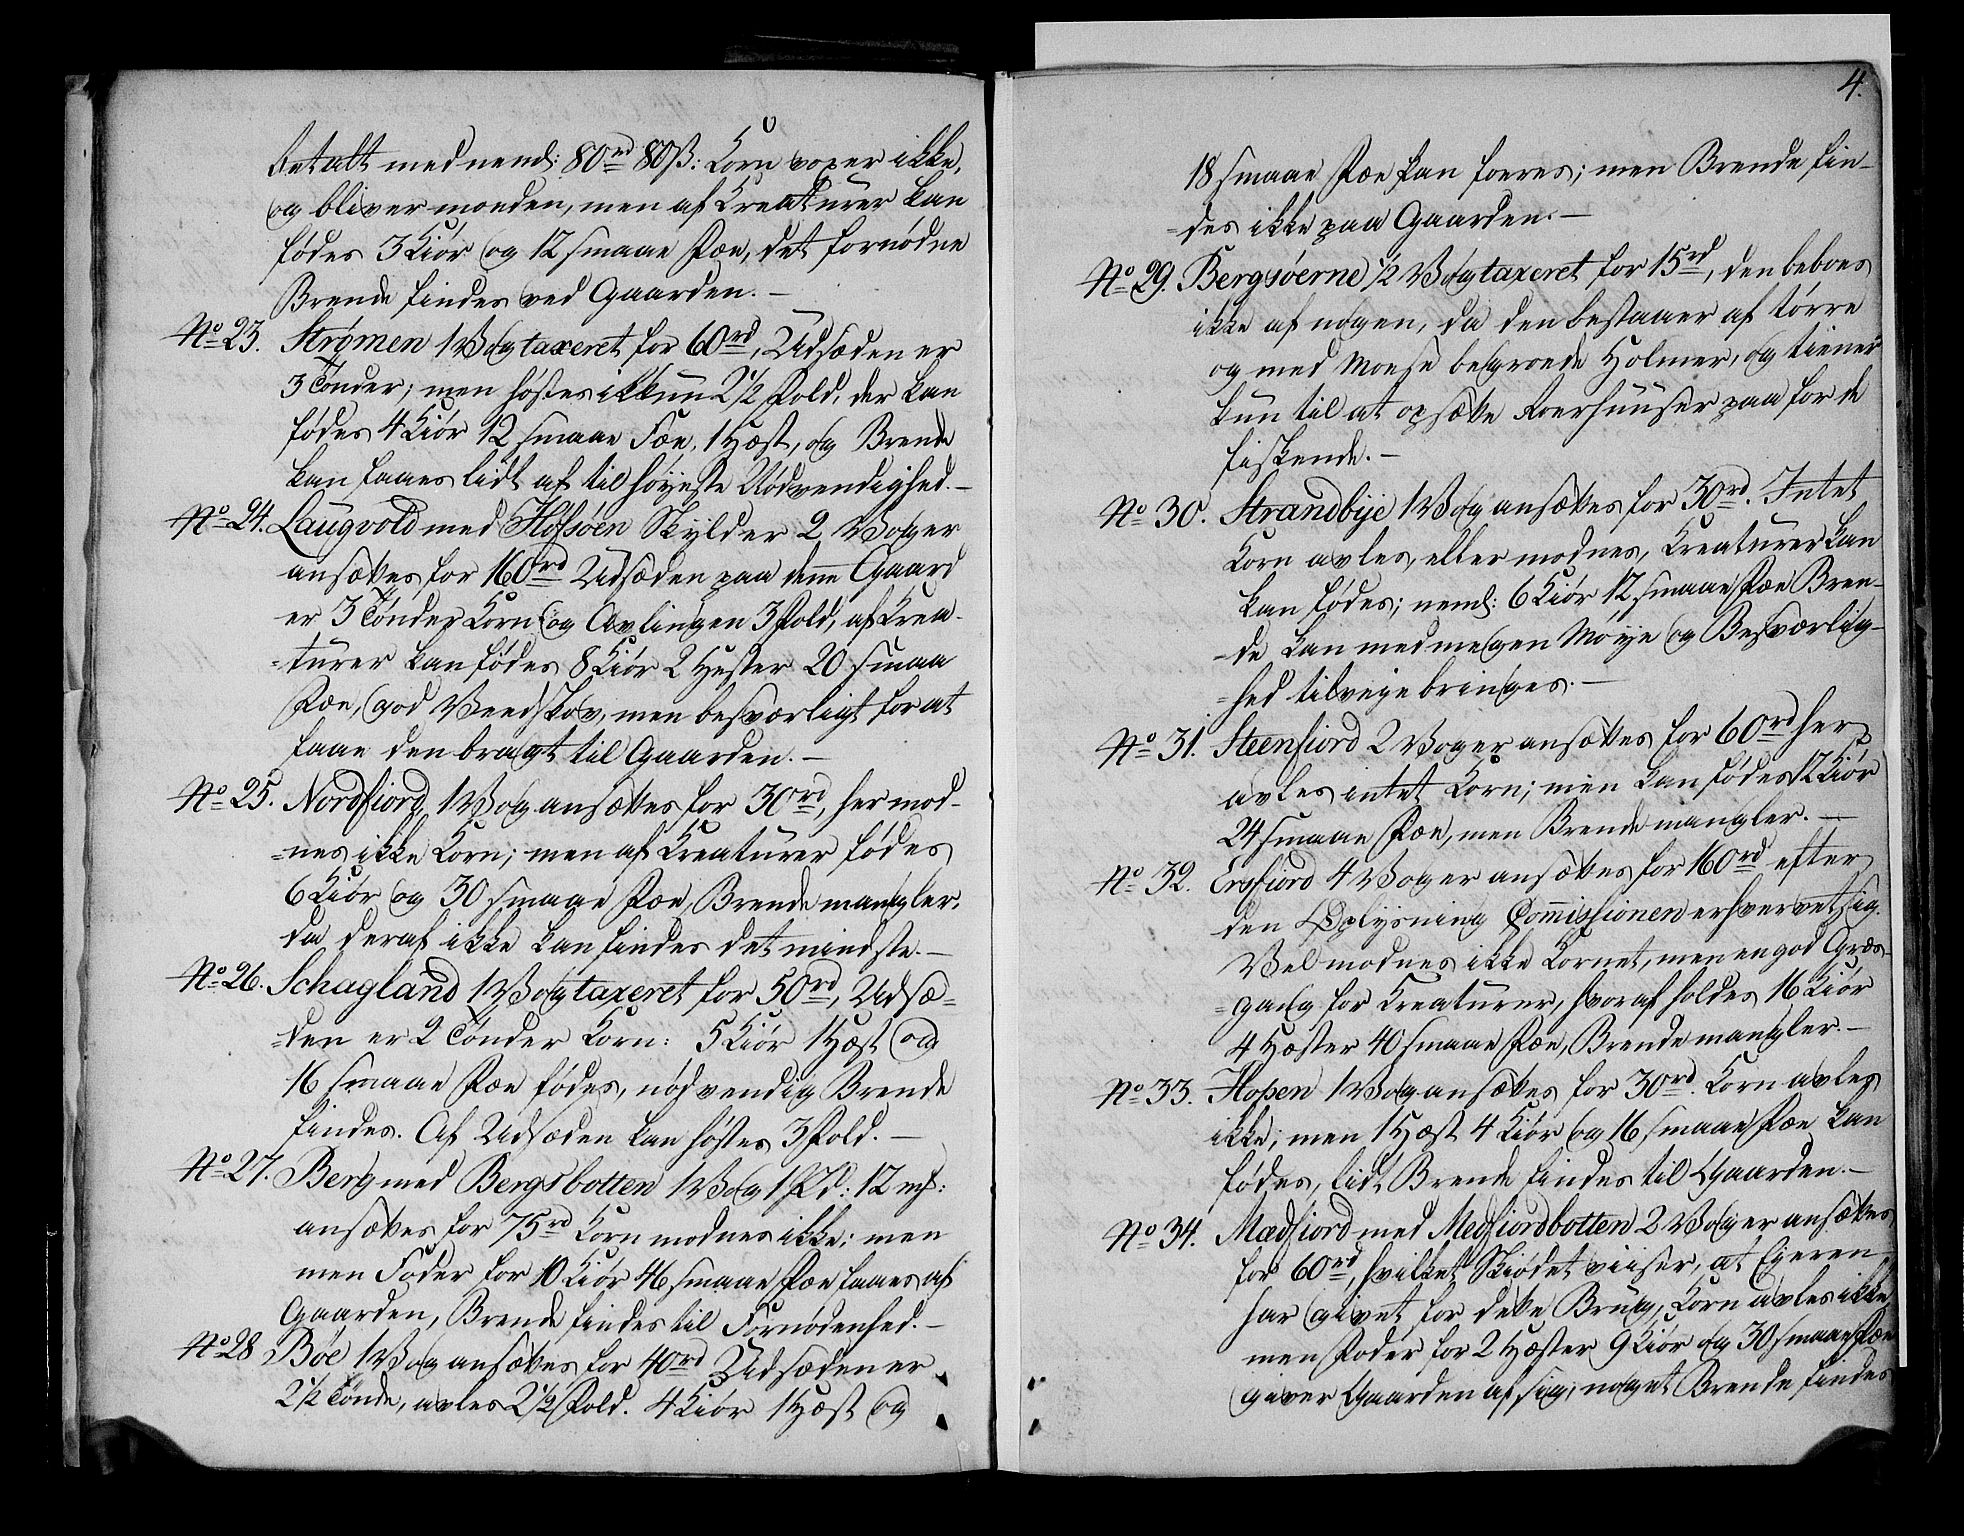 betalt med neml: 80rd 80ß: Korn voxer ikke,
og bliver moeden, men af Creaturer kan
fødes 3 Kiør og 12 smaae Fæe, det fornødne
Brende findes ved Gaarden.—
No 23. Strømen 1 Vog taxeret for 60rd, Udsæden er
3 Tønder; men høstes ikkun 2½ Fold, der kan
fødes 4 Kiør 12 smaae Fæe, 1 Hæst, og Brende
kan faaes lidt af til høyeste Nødvendighed.—
No 24. Laugvold med Hofsøen Skylder 2 Voger
ansættes for 160rd Udsæden paa denne Gaard
er 3 Tønder Korn og Avlingen 3 Fold, af Krea-
=turer kan fødes 8 Kiør 2 Hester 20 smaa
Fæe, god Veedskov, men besværligt for at
faae den bragt til Gaarden.—
No 25. Nordfiord, 1 Vog ansættes for 30rd, her mod-
=nes ikke Korn; men af Kreaturer fødes
6 Kiør og 30 smaae Fæe, Brende mangler,
da deraf ikke kan findes det mindste.—
No 26. Schagland 1 Vog taxeret for 50rd, Udsæ=
=den er 2 Tønder Korn: 5 Kiør 1 Hæst og
16 smaae Fæe fødes, nødvendig Brende
findes. Af Udsæden kan høstes 3 Fold.—
No 27. Berg med Bergsbotten 1 Vog 1 Pd: 12 mk:
ansættes for 75rd Korn modnes ikke; men
men Foder for 10 Kiør 46 smaae Fæe faaes af
Gaarden, Brende findes til Fornødenhed.—
No 28 Bøe 1 Vog ansættes for 40rd Udsæden er
2½ Tønde, avles 2½ Fold. 4 Kiør 1 Hæst og
4.
18 smaae Fæe kan foeres; men Brende fin-
=des ikke paa Gaarden.—
No 29. Bergsøerne ½ Vog taxeret for 15rd, den beboes
ikke af nogen, da den bestaaer af tørre
og med Moese begroede Holmer, og tiener
kun til at opsætte Roerhuuser paa for de
fiskende.—
No 30. Strandbÿe 1 Vog ansættes for 30rd. Intet
Korn avles, eller modnes, Kreaturer kan
kan fødes; neml: 6 Kiør 12 smaae Fæe Bren-
=de kan med megen Møÿe og Besværlig-
=hed tilveÿebringes.—
No 31. Steenfiord 2 Voger ansættes for 60rd her
avles intet Korn; men kan fødes 12 Kiør
24 smaae Fæe, men Brende mangler.—
No 32. Ersfiord 4 Voger ansættes for 160rd efter
den Oplysning Commissionen erhvervet sig.
Vel modnes ikke Kornet, men en god Græs-
=gang for Kreaturer, hvoraf holdes 16 Kiør
4 Hæster 40 smaae Fæe, Brende mangler.—
No 33. Hopen 1 Vog ansættes for 30rd. Korn avles
ikke; men 1 Hæst 4 Kiør og 16 smaae Fæe kan
fødes, lidt Brende findes til Gaarden.—
No 34. Mædfiord med Medfiordbotten 2 Voger ansættes
for 60rd, hvilket Skiødet viiser, at Ejeren
har givet for dette Brug, Korn avles ikke
men Foder for 2 Hæster 9 Kiør og 30 smaae Fæe
giver Gaarden af sig; noget Brende findes